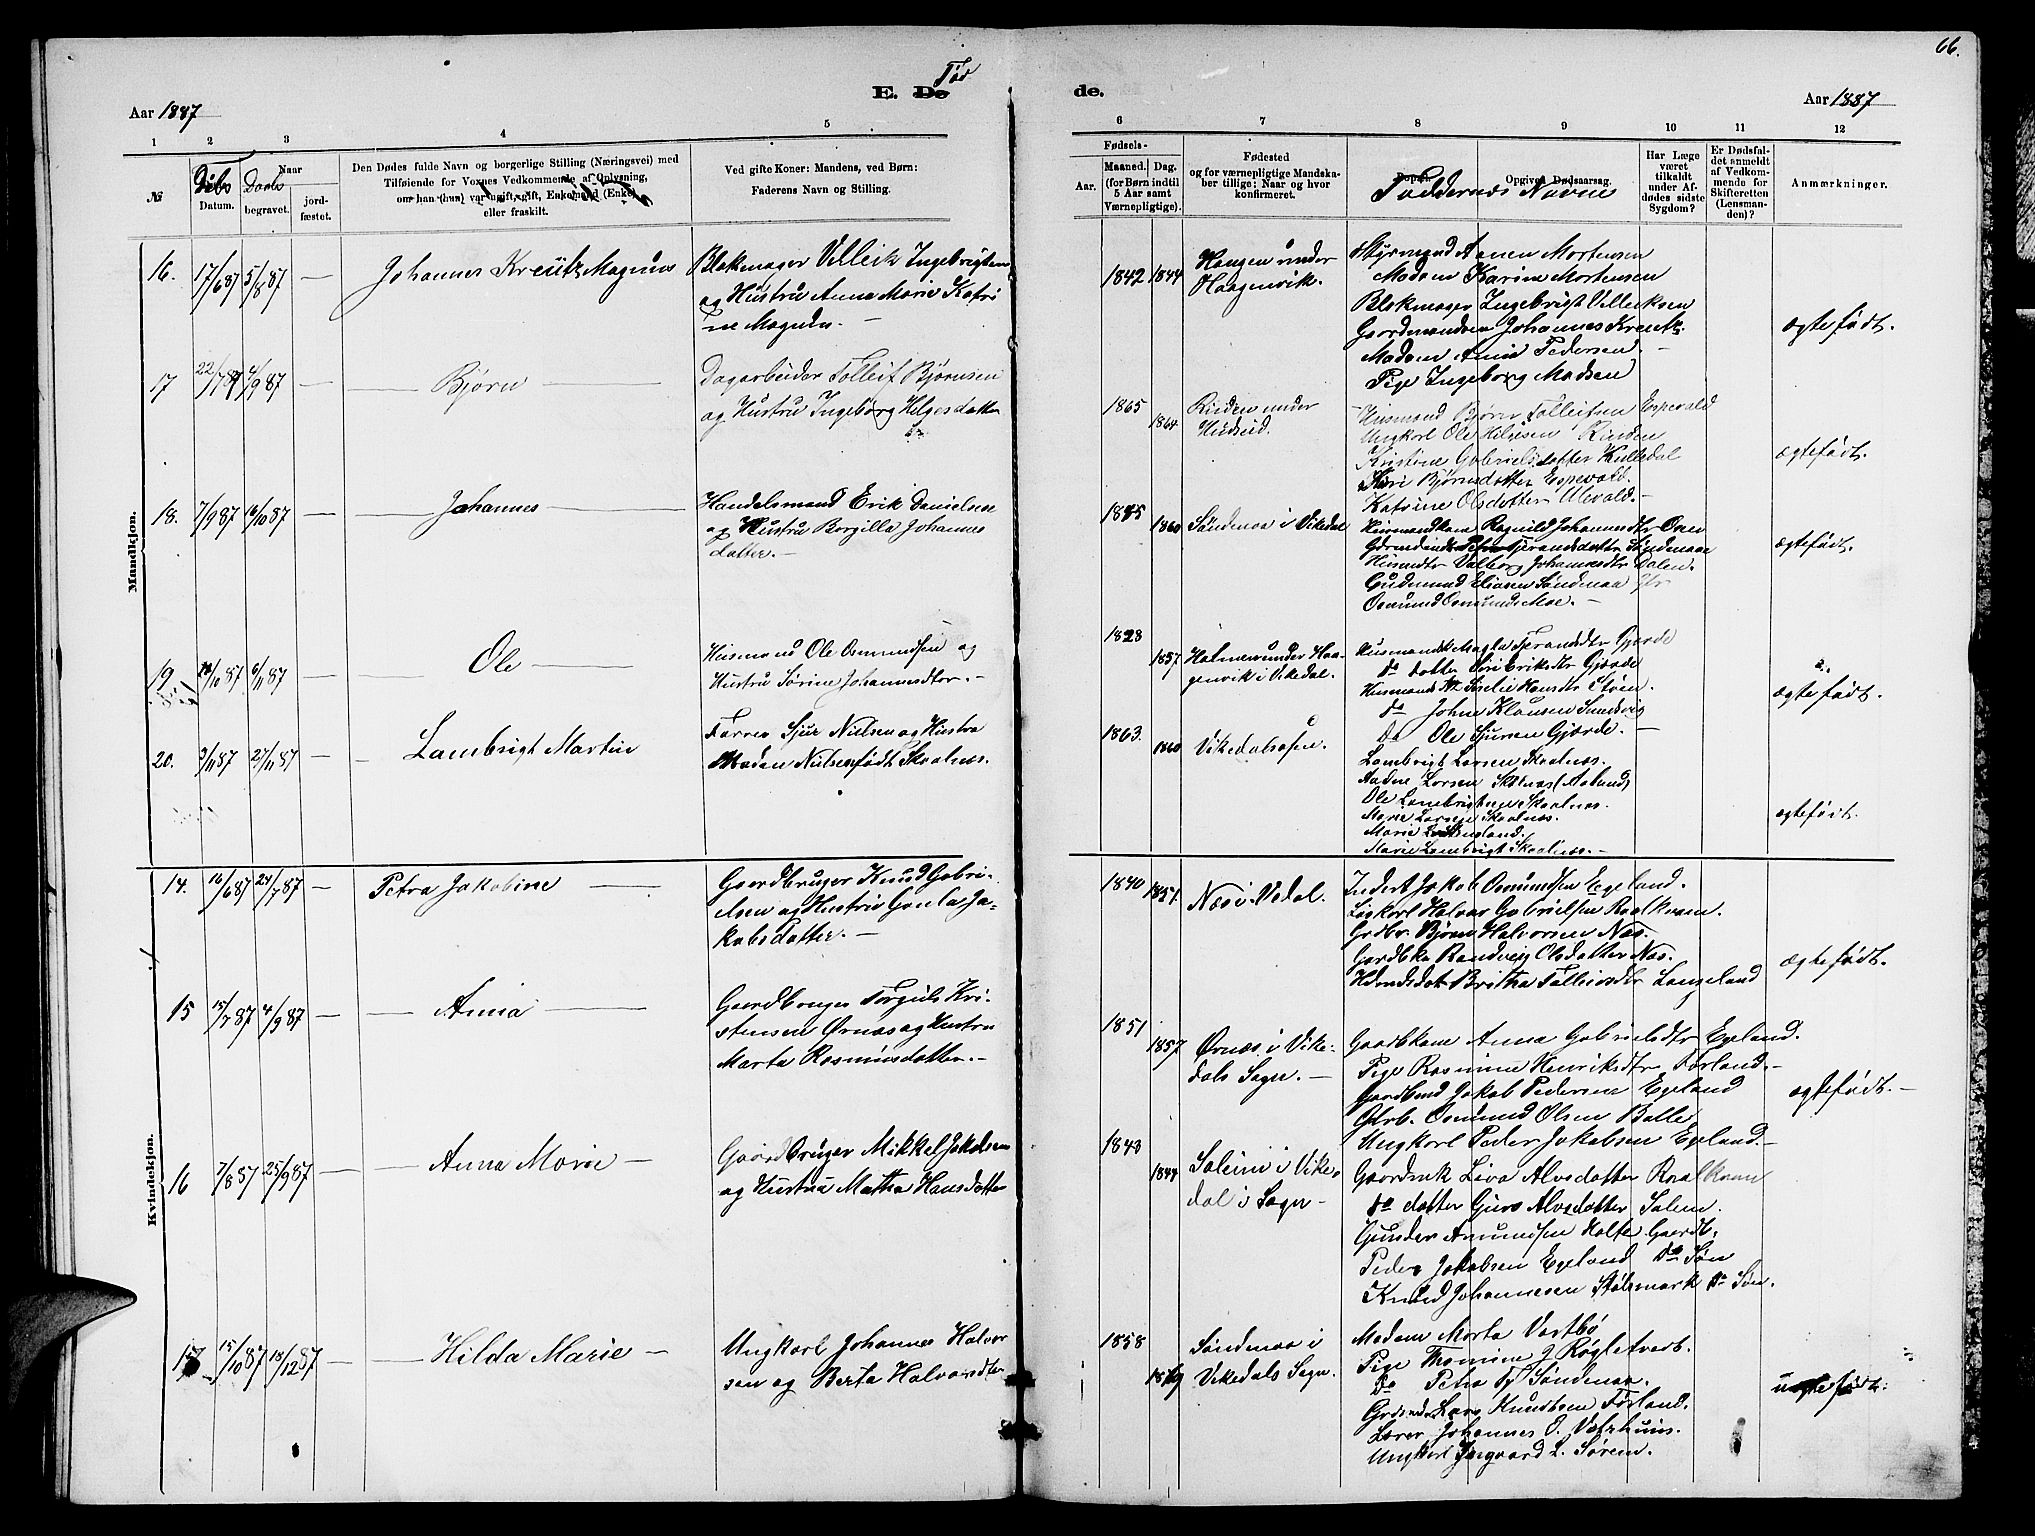 66.
Aar 1887
E. De
Fød
de.
Aar 1887
1 2 3 4 5
6 7 8 9 10 11 12
№
Datum.
Naar
Daabs
begravet.
jord-
fæstet.
Den Dødes fulde Navn og borgerlige Stilling (Næringsvei) med
Tilføiende for Voxnes Vedkommende af Oplysning,
om han (hun) var ugift, gift, Enkemand (Enke)
eller fraskilt.
Ved gifte Koner: Mandens, ved Børn:
Faderens Navn og Stilling.
Fødsels-
Aar.
Maaned. Dag.
(for Børn indtil
5 Aar samt
Værnepligtige).
Fødested
og for værnepligtige Mandska-
ber tillige: Naar og hvor
konfirmeret.
Opgiven Dødsaarsag.
Faddernes Navne
Har Læge
været
tilkaldt
under Af-
dødes sidste
Sygdom?
Er Dødsfal-
det anmeldt
af Vedkom-
mende for
Skifteretten
(Lensman-
den)?
Anmærkninger.
Mandkjøn.
16. 17/6 87 5/8 87 — Johannes Kreutz Magnus
Blokmager Villeik Ingebrigtsen
og Hustru Anna Marie Katri
ne Magnda. —
1842 1844 Haugen under
Haagenvik.
Styrmand Anen Mortensen
Madam Karine Mortensen
Blokmager Ingebrigt Villeiksen
Gaardmandsen Johannes Kreutz.
Madam Anna Pedersen. —
Pige Ingeborg Madsen
ægtefødt.
17 22/7 87 4/9 87 — Bjørn —
Dagarbeider Tolleif Bjørnsen
og Hustru Ingeborg Helgesdatter
1865 1864 Rinden under
Hudseid.
Husmand Bjørn Tolleifsen Espevold
Ungkarl Ole Helgesen Rinden
Kristine Gabrielsdatter Kulledal
Kari Bjørnsdatter Espevold.
Katrine Olsdatter Ulevold —
ægtefødt.
18. 7/9 87 16/10 87 — Johannes —
Handelsmand Erik Danielsen
og Hustru Borgilla Johannes
datter. —
1885 1860 Søndenaa i Vikedal
Ragnild Johannesdtr
Søndenaa
Valborg Johannesdtr Dalen.
Gudmund Eliasen Søndenaa
Osmund Osmunds Moe. —
ægtefødt.
19 /10 87 6/11 87 — Ole —
Husmand Ole Osmundsen og
Hustru Sørine Johannesdter. —
1828 1857 Holmen under Haa-
genvik i Vikedal.
Husmandsk Magla Tjerandsdtr Gjerde
do datter Siri Eriksdtr Gjerde
Hansdtr Støen.
do Johne Klausen Sundvig
Do Ole Sjursen Gjerde. —
ægtefødt.
20. 3/11 87 27/11 87 — Lambrigt Martin
Farver Sjur Nielsen og Hustru
Madam Nielsen født Skaalnes.
1863. 1860 Vikedalsøen.
Lambrigt Larsen Skaalnæs.
Aadne Larsen Skalnæs (Aalund)
Ole Lambrigtsen Skaalnæs.
Marie Larsen Skaalnæs.
Marie
Marie Lambrigt Skaalnes. —
ægtefødt.
Kvindekjøn.
14. 16/6 87 24/7 87 — Petra Jakobine —
Gaardbruger Knud Gabri-
elsen og Hustru Gunla Ja-
kobsdatter. —
1840 1851. Næs i Vedal.
Inderst Jakob Osmundsen Egeland.
Løskarl Halvar Gabrielsen Raalkvam.
Grdbr. Bjørn Halvorsen Næs.
Gardbke Randveig Olsdatter Næs.
Britha Tolleivsdtr Langeland
ægtefødt.
15 15/7 87 4/9 87 — Anna —
Gaardbruger Torgius Kri-
stensen Ørnæs og Hustru
Marta Rasmusdatter. —
1851 1857 Ørnæs i Vike-
dals Sogn. —
Gaardkone Anna Gabrielsdtr Egeland.
Pige Rasmine Henriksdtr Førland. —
Gaardmd Jakob Pedersen Egeland
Gbrb. Osmund Olsen Balle
Ungkarl Peder Jakobsen Egeland. —
ægtefødt. —
16 7/8 87 25/9 87 — Anna Marie —
Gaardbruger Mikkel Jakobsen
og Hustru Martha Hansdatter
1843 1844 Saleim i Vike-
dal i Sogn —
Gaardmk Liva Alvsdatter Raalkvam
do datter Guro Alvsdatter Salem.
Gunder Amundsen Holte Gaardb.
Peder Jakobsen Egeland Do Søn
Knud Johannesen Stølsmark do Søn.
17 15/10 87 18/12 87 — Hilda Marie —
Ungkarl Johannes Halvor
sen og Berta Halvorsdter
1858 Søndenaa i
Vikedals Sogn.
Madam Marta Vastbø
Pige Thomine J Røgletvedt.
Do Petra Søndenaa.
Lars Knudsen Førland.
Lærer Johannes O. Vatshuus.
Ungkarl Ingvard L. Sørem. —
uægtefødt.